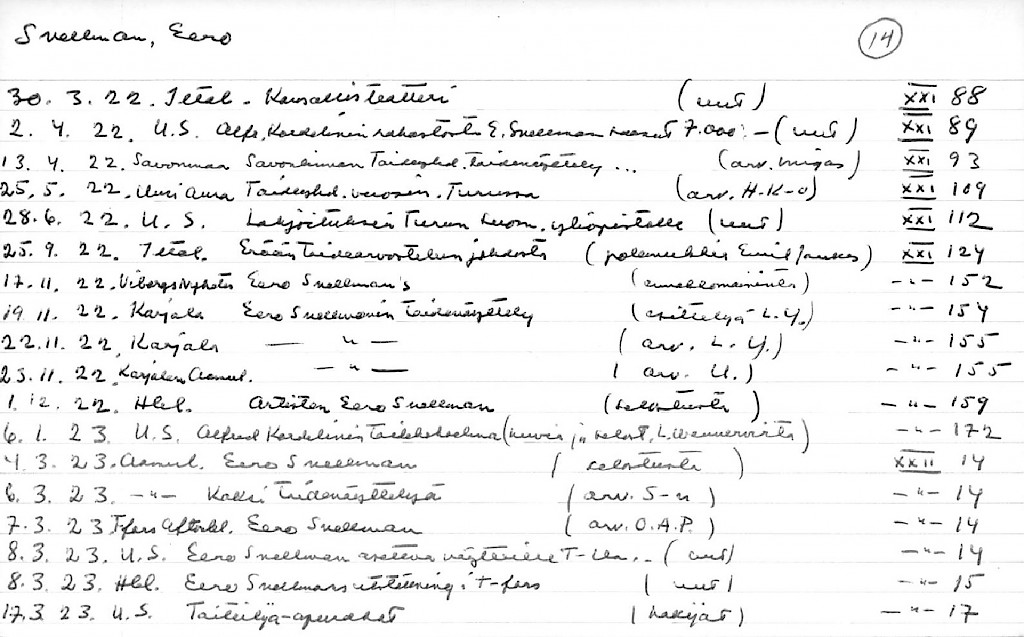 Snellman, Eero (14)
30. 3. 22. Iltal. Kansallisteatteri (uut) XXI 88
2. 4. 22. U.S. Alfr. Kordelinin rahastosta E. Snellman saanut 7.000:- (uut) XXI 89
13. 4. 22. Savonmaa Savonlinnan Taideyhd. taidenäyttely ... (arv. XXI 93
25. 5. 22. Uusi Aura Taideyhd. vuosin. Turussa (arv. H-K-o) XXI 109
28. 6. 22. U.S. Lahjoituksia Turun suom. yliopistolle (uut) XXI 112
25. 9. 22. Iltal. Erään taidearvostelun johdosta (polemiikkia XXI 124
17. 11. 22. Viborgs Nyheter Eero Snellman's -"- 152
19. 11. 22. Karjala Eero Snellmanin taidenäyttely (esittelyä L.Y.) -"- 154
22. 11. 22. Karjala — " — (arv. L.Y.) -"- 155
23. 11. 22. Karjalan Aamul. — " — (arv. U.) -"- 155
1. 12. 22. Hbl. Artisten Eero Snellman (selostusta) -"- 159
6. 1. 23. U.S. Alfred Kordelinin taidekokoelma (kuvia ja selost. L. Wennervirta) -"- 172
4. 3. 23. Aamul. Eero Snellman (selostusta) XXII 14
6. 3. 23. -"- Kaksi taidenäyttelyä (arv. S-n) -"- 14
7. 3. 23 T:fors Aftonbl. Eero Snellman (arv. O.A.P.) -"- 14
8. 3. 23. U.S. Eero Snellman asettanut näytteille T-lla.. (uut) -"- 14
8. 3. 23. Hbl. Eero Snellmans utställning i T-fors (uut) -"- 15
17. 3. 23. U.S. Taiteilija-apurahat (hakijat) -"- 17